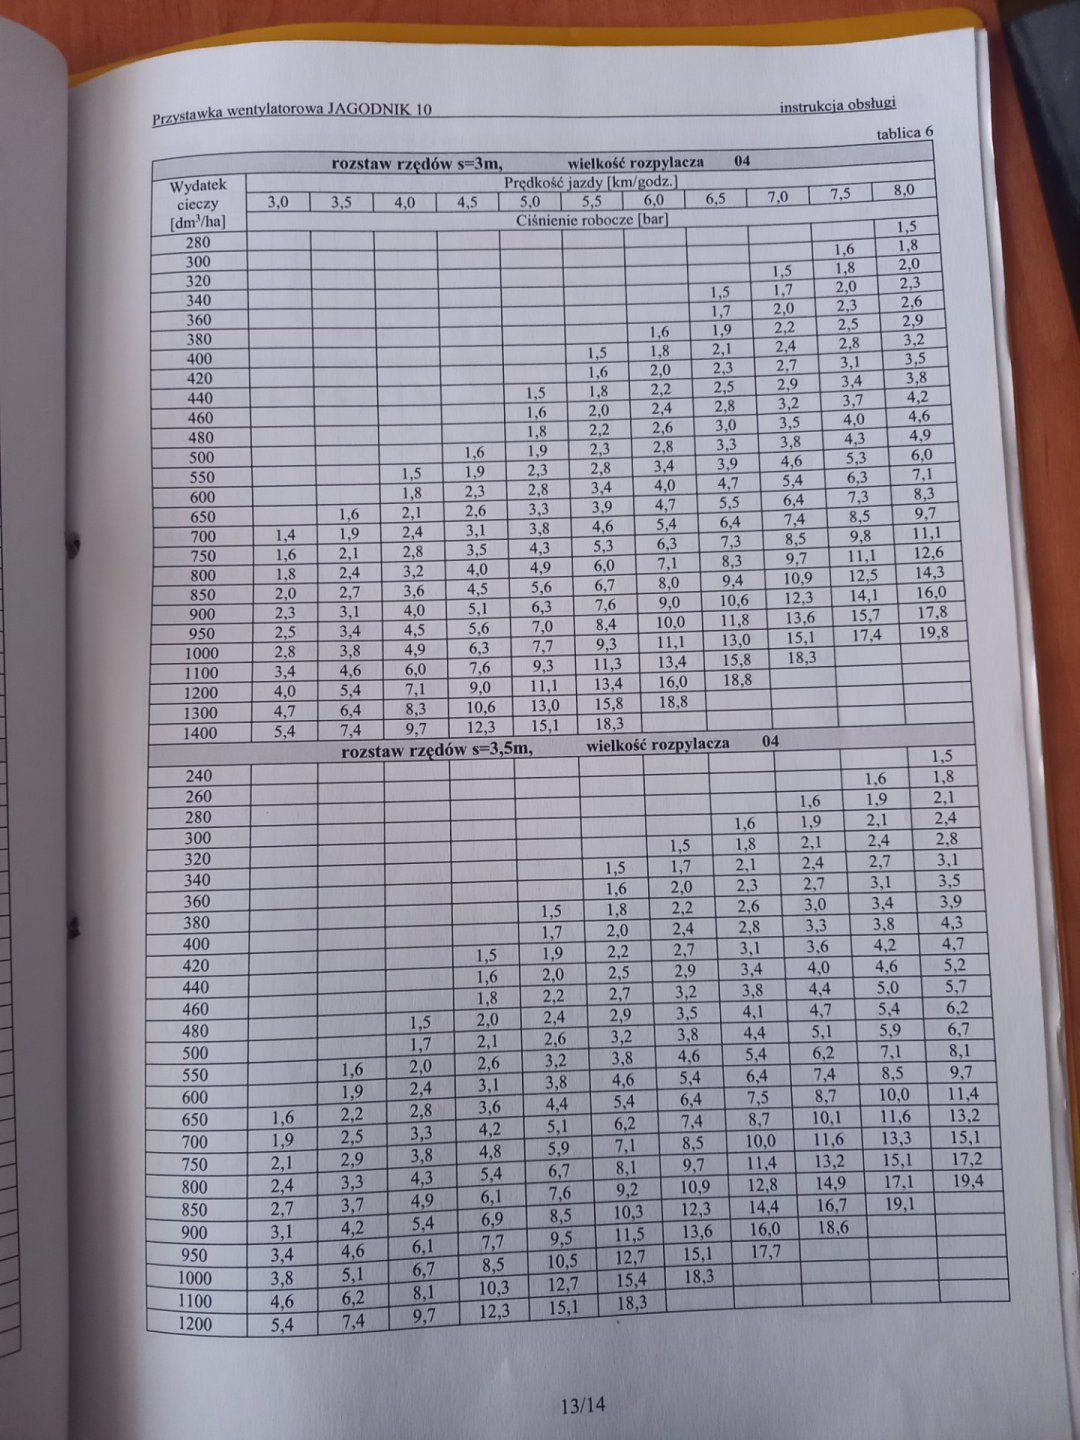 Przystawka wentylatorowa JAGODNIK 10 instrukcja obsługi
tablica 6
rozstaw rzędów s=3m, wielkość rozpylacza 04
Wydatek cieczy [dm³/ha] Prędkość jazdy [km/godz.]
3,0 3,5 4,0 4,5 5,0 5,5 6,0 6,5 7,0 7,5 8,0
Ciśnienie robocze [bar]
280 1,5
300 1,6 1,8
320 1,5 1,8 2,0
340 1,5 1,7 2,0 2,3
360 1,7 2,0 2,3 2,6
380 1,6 1,9 2,2 2,5 2,9
400 1,5 1,8 2,1 2,4 2,8 3,2
420 1,6 2,0 2,3 2,7 3,1 3,5
440 1,5 1,8 2,2 2,5 2,9 3,4 3,8
460 1,6 2,0 2,4 2,8 3,2 3,7 4,2
480 1,8 2,2 2,6 3,0 3,5 4,0 4,6
500 1,6 1,9 2,3 2,8 3,3 3,8 4,3 4,9
550 1,5 1,9 2,3 2,8 3,4 3,9 4,6 5,3 6,0
600 1,8 2,3 2,8 3,4 4,0 4,7 5,4 6,3 7,1
650 1,6 2,1 2,6 3,3 3,9 4,7 5,5 6,4 7,3 8,3
700 1,4 1,9 2,4 3,1 3,8 4,6 5,4 6,4 7,4 8,5 9,7
750 1,6 2,1 2,8 3,5 4,3 5,3 6,3 7,3 8,5 9,8 11,1
800 1,8 2,4 3,2 4,0 4,9 6,0 7,1 8,3 9,7 11,1 12,6
850 2,0 2,7 3,6 4,5 5,6 6,7 8,0 9,4 10,9 12,5 14,3
900 2,3 3,1 4,0 5,1 6,3 7,6 9,0 10,6 12,3 14,1 16,0
950 2,5 3,4 4,5 5,6 7,0 8,4 10,0 11,8 13,6 15,7 17,8
1000 2,8 3,8 4,9 6,3 7,7 9,3 11,1 13,0 15,1 17,4 19,8
1100 3,4 4,6 6,0 7,6 9,3 11,3 13,4 15,8 18,3
1200 4,0 5,4 7,1 9,0 11,1 13,4 16,0 18,8
1300 4,7 6,4 8,3 10,6 13,0 15,8 18,8
1400 5,4 7,4 9,7 12,3 15,1 18,3
rozstaw rzędów s=3,5m, wielkość rozpylacza 04
240 1,5
260 1,6 1,8
280 1,6 1,9 2,1
300 1,6 1,9 2,1 2,4
320 1,5 1,8 2,1 2,4 2,8
340 1,5 1,7 2,1 2,4 2,7 3,1
360 1,6 2,0 2,3 2,7 3,1 3,5
380 1,5 1,8 2,2 2,6 3,0 3,4 3,9
400 1,7 2,0 2,4 2,8 3,3 3,8 4,3
420 1,5 1,9 2,2 2,7 3,1 3,6 4,2 4,7
440 1,6 2,0 2,5 2,9 3,4 4,0 4,6 5,2
460 1,8 2,2 2,7 3,2 3,8 4,4 5,0 5,7
480 1,5 2,0 2,4 2,9 3,5 4,1 4,7 5,4 6,2
500 1,7 2,1 2,6 3,2 3,8 4,4 5,1 5,9 6,7
550 1,6 2,0 2,6 3,2 3,8 4,6 5,4 6,2 7,1 8,1
600 1,9 2,4 3,1 3,8 4,6 5,4 6,4 7,4 8,5 9,7
650 1,6 2,2 2,8 3,6 4,4 5,4 6,4 7,5 8,7 10,0 11,4
700 1,9 2,5 3,3 4,2 5,1 6,2 7,4 8,7 10,1 11,6 13,2
750 2,1 2,9 3,8 4,8 5,9 7,1 8,5 10,0 11,6 13,3 15,1
800 2,4 3,3 4,3 5,4 6,7 8,1 9,7 11,4 13,2 15,1 17,2
850 2,7 3,7 4,9 6,1 7,6 9,2 10,9 12,8 14,9 17,1 19,4
900 3,1 4,2 5,4 6,9 8,5 10,3 12,3 14,4 16,7 19,1
950 3,4 4,6 6,1 7,7 9,5 11,5 13,6 16,0 18,6
1000 3,8 5,1 6,7 8,5 10,5 12,7 15,1 17,7
1100 4,6 6,2 8,1 10,3 12,7 15,4 18,3
1200 5,4 7,4 9,7 12,3 15,1 18,3
13/14